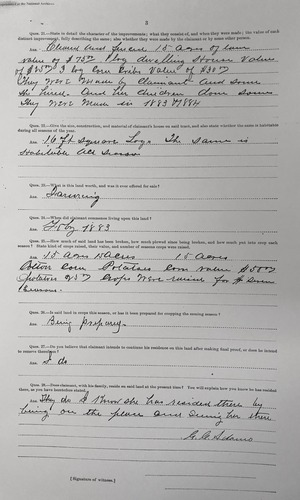 3
Ques. 21.—State in detail the character of the improvements; what they consist of, and when they were made; the value of each
distinct improvement, fully describing the same; also whether they were made by the claimant or by some other person.
Ans. Cleared and fenced 15 acres of land
value of $75 00 1 log dwelling House Value
of $35 00 3 log corn cribs Value of $30 00
They Were Made by Claimant and some
She hired And her children done some
They Were Made in 1883 1884
Ques. 22.—Give the size, construction, and material of claimant's house on said tract, and also state whether the same is habitable
during all seasons of the year.
Ans. 16 ft square Log. The same is
Habitable All Season
Ques. 23.—What is this land worth, and was it ever offered for sale?
Ans. Farming
Ques. 24.—When did claimant commence living upon this land?
Ans. Feby 1883
Ques. 25.—How much of said land has been broken, how much plowed since being broken, and how much put into crop each
season? State kind of crops raised, their value, and number of seasons crops were raised.
Ans. 15 Acres 15 Acres 15 Acres
Cotton Corn Potatoes Corn value $50 00
Potatoes Crops Were raised for
Seasons.
Ques. 26.—Is said land crops this season, or is it been prepared for cropping the ensuing season?
Ans. Being Prepared.
Ques. 27.—Do you believe that claimant intends to continue his residence on this land after making final proof, or does he intend
to remove therefrom?
Ans. I do
Ques. 28.—Does claimant, with his family, reside on said land at the present time? You will explain how you know he has resided
there, as you have heretofore stated.
Ans. They do I Know she has resided there by
being on the place and seeing her there
C. C. Adams
[Signature of witness.]